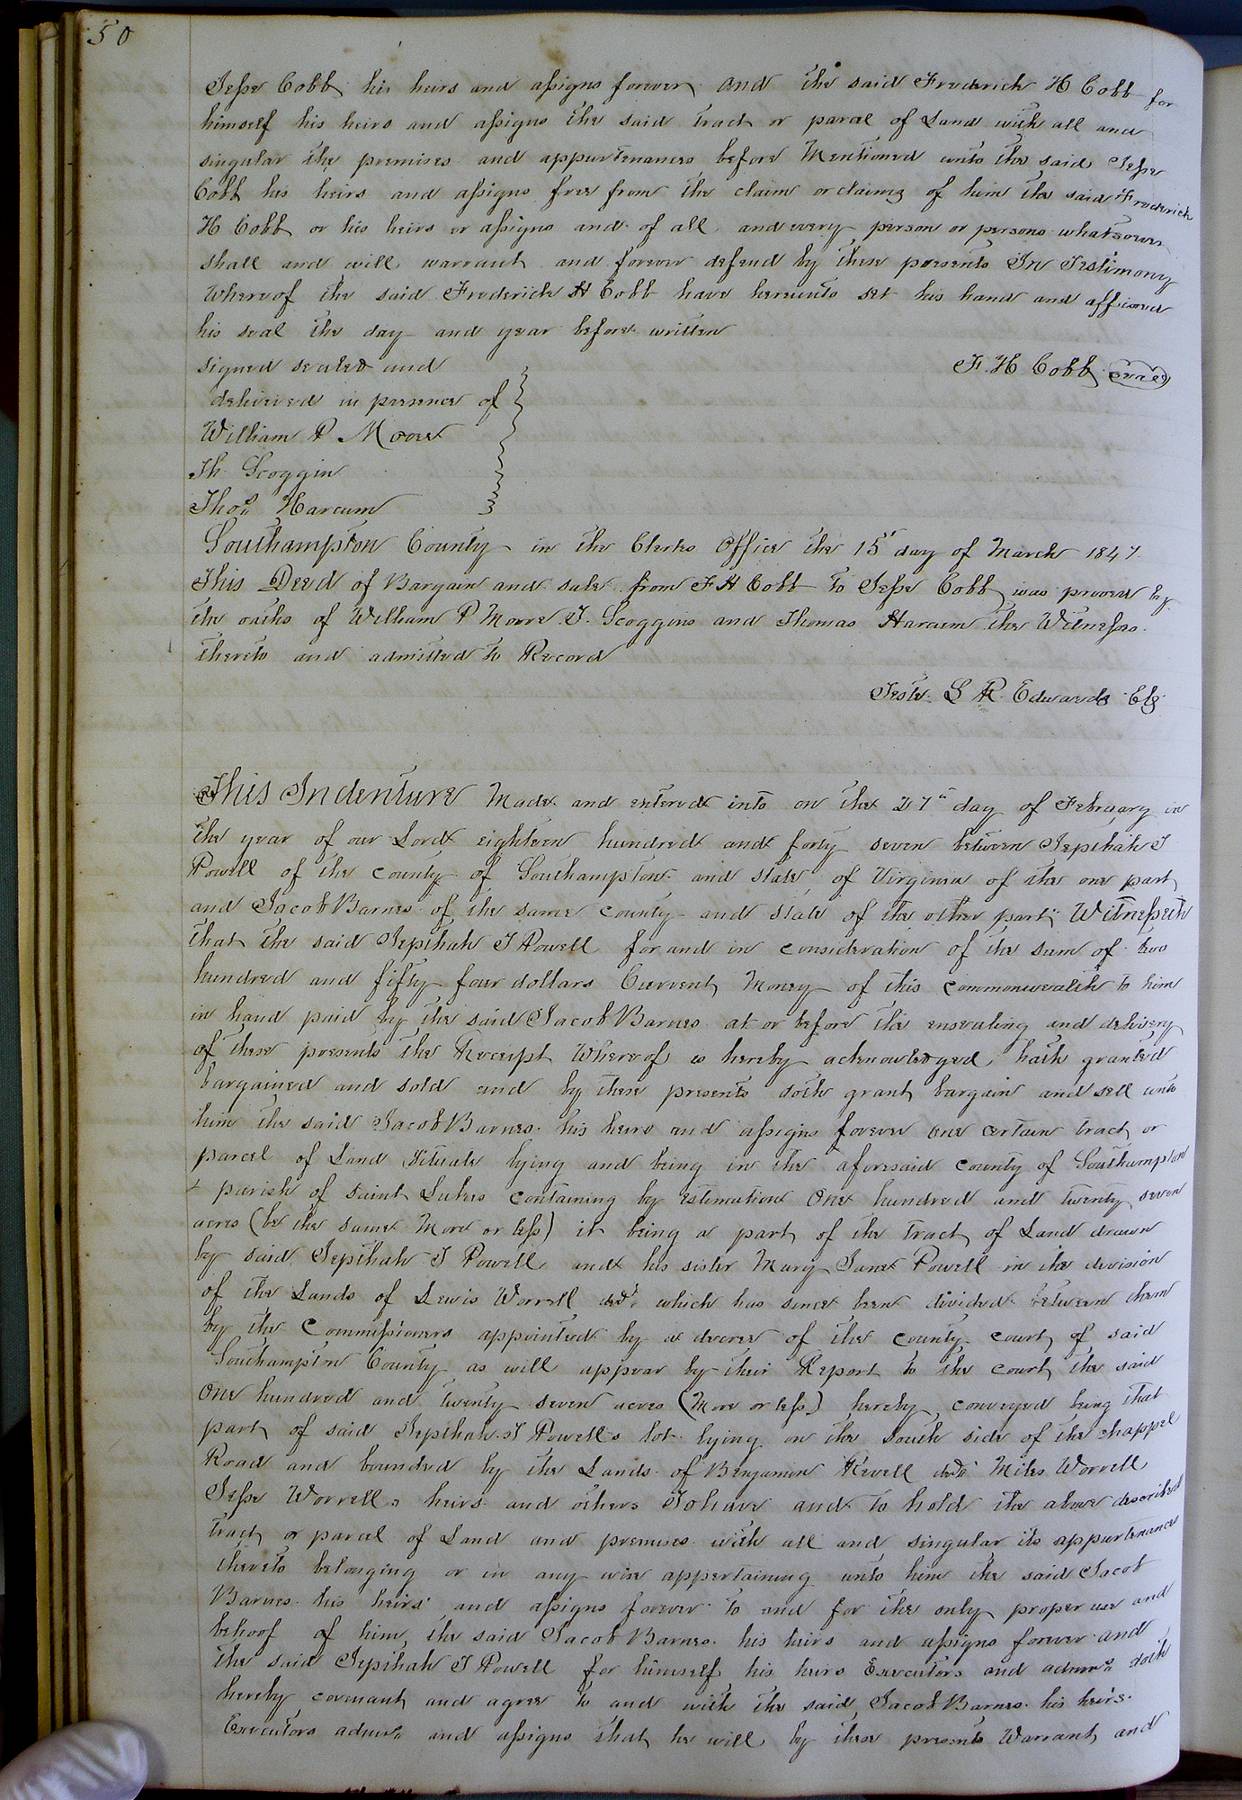 50
Jesse Cobb his heirs and assigns forever and the said Frederick H Cobb for
himself his heirs and assigns the said tract or parcel of Land with all and
singular the premises and appurtenances before Mentioned unto the said Jesse
Cobb his heirs and assigns free from the claim or claims of him the said Frederick
H Cobb or his heirs or assigns and of all and every person or persons whatsoever
shall and will warrant and forever defend by these presents In Testimony
Whereof the said Frederick H Cobb have hereunto set his hand and affixed
his seal the day and year before written
signed sealed and
F. H Cobb seal
delivered in presence of
William P Moore
Th Scoggin
Thos Harcum
Southampton County in the Clerks Office the 15th day of March 1847
This Deed of Bargain and sale from F H Cobb to Jesse Cobb was proved by
the oaths of William P Moore T. Scoggins and Thomas Harcum the Witnesses
thereto and admitted to Record
Teste L R Edwards Clk
This Indenture Made and entered into on the 27th day of February in
the year of our Lord eighteen hundred and forty seven between Jepthah T
Powell of the County of Southampton and state of Virginia of the one part
and Jacob Barnes of the same County and state of the other part Witnesseth
that the said Jepthah T Powell for and in consideration of the sum of two
hundred and fifty four dollars Current Money of this commonwealth to him
in hand paid by the said Jacob Barnes at or before the ensealing and delivery
of these presents the Receipt Whereof is hereby acknowledged, hath granted
bargained and sold and by these presents doth grant bargain and sell unto
him the said Jacob Barnes his heirs and assigns forever one certain tract or
parcel of Land Situate lying and being in the aforesaid County of Southampton
& parish of Saint Lukes containing by estimation One hundred and twenty seven
acres (be the same More or less) it being a part of the tract of Land drawn
by said Jepthah T Powell and his sister Mary Jane Powell in the division
of the Lands of Lewis Worrell decd. which has since been divided between them
by the Commissioners appointed by a decree of the county court of said
Southampton County as will appear by their Report to the court the said
One hundred and twenty seven acres (More or less) hereby conveyed being that
part of said Jepthah T Powells lot lying on the South side of the chappel
Road and bounded by the Lands of Benjamin decd Miles Worrell
Jesse Worrells heirs and others To have and to hold the above described
tract or parcel of Land and premises with all and singular its appurtenances
thereto belonging or in any wise appertaining unto him the said Jacob
Barnes his heirs and assigns forever to and for the only proper use and
behoof of him, the said Jacob Barnes his heirs and assigns forever and
the said Jepthah T Powell for himself his heirs Executors and admrs doth
hereby covenant and agree to and with the said Jacob Barnes his heirs
Executors admrs and assigns that he will by these presents Warrant and